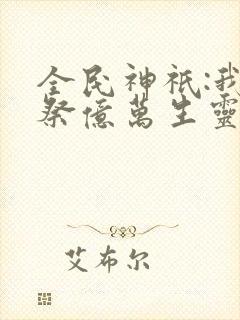 全民神祇:我
祭億萬生靈
艾布尔